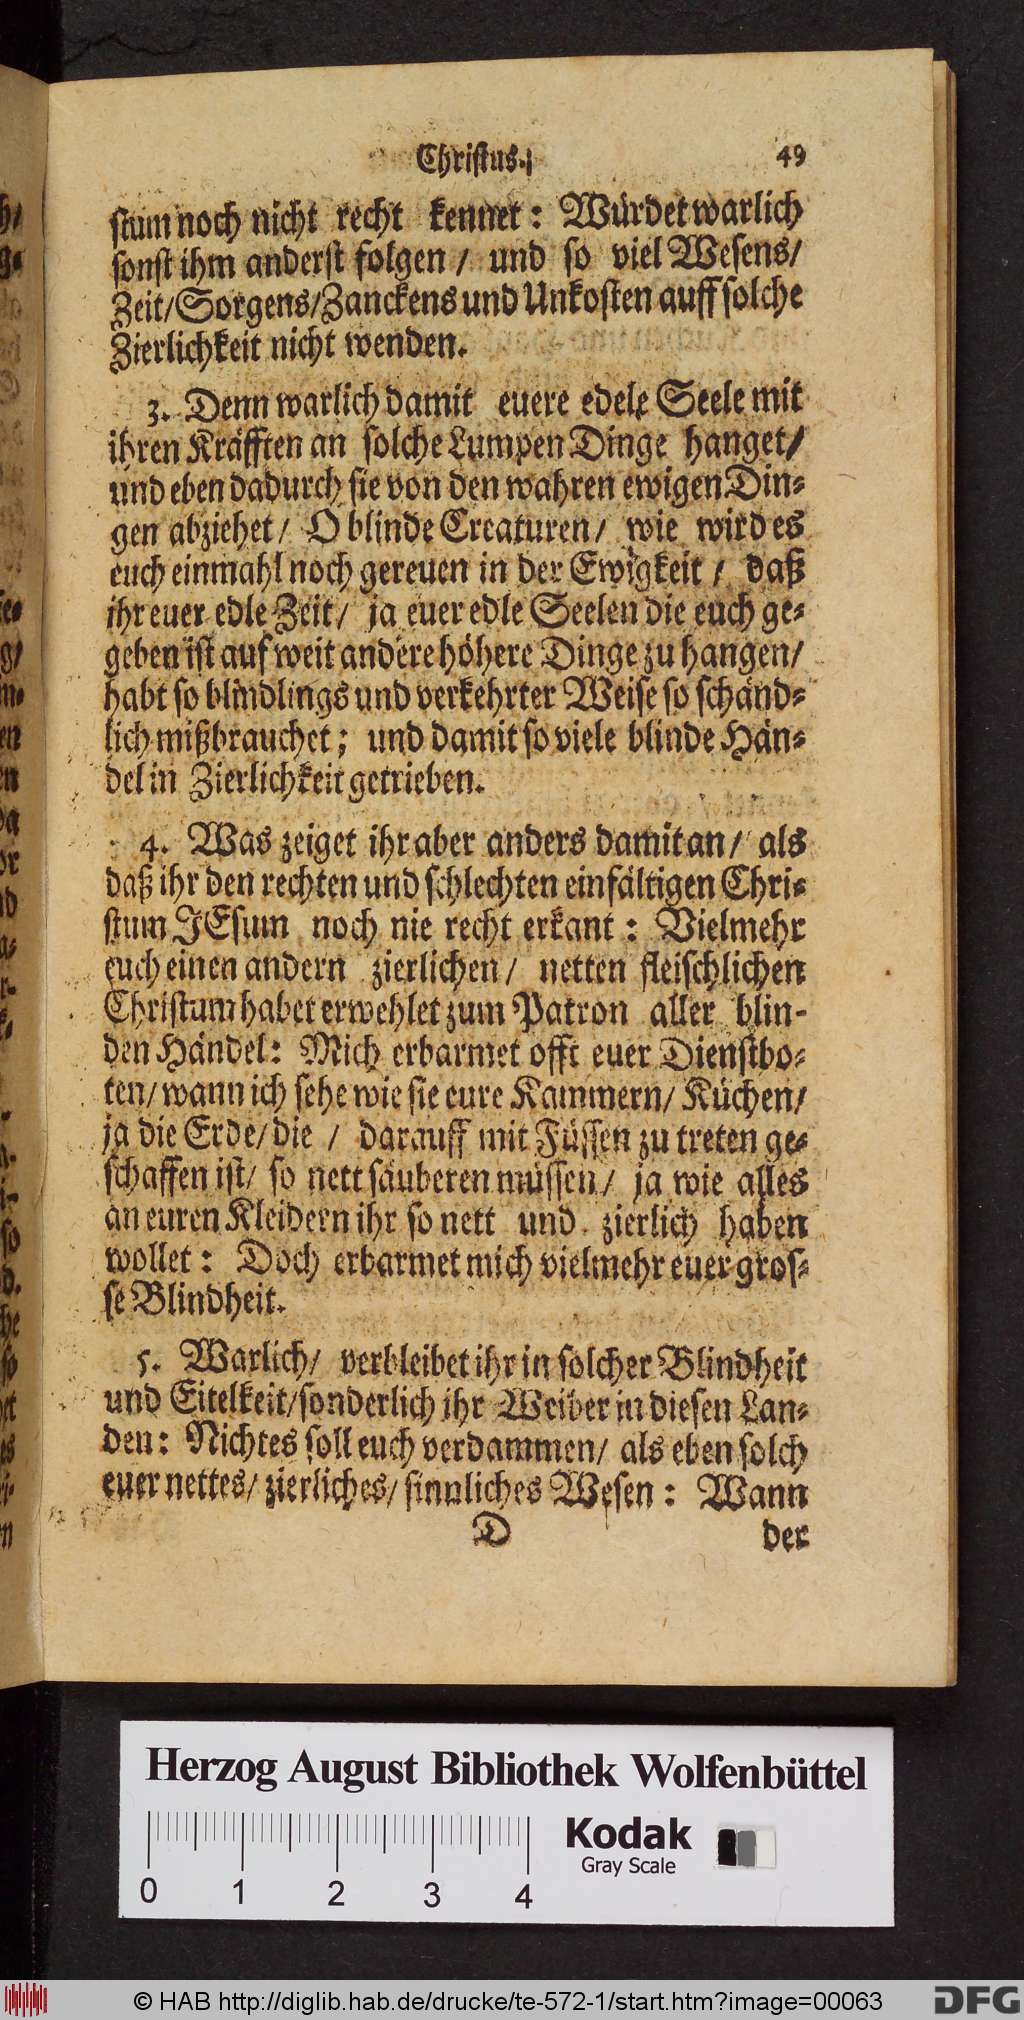 Christus. 49
stum noch nicht recht kennet: Würdet warlich
sonst ihm anderst folgen / und so viel Wesens/
Zeit/Sorgens/Zanckens und Unkosten auff solche
Zierlichkeit nicht wenden.
3. Denn warlich damit euere edele Seele mit
ihren Kräfften an solche Lumpen Dinge hanget/
und eben dadurch sie von den wahren ewigen Din-
gen abziehet/ O blinde Creaturen/ wie wird es
euch einmahl noch gereuen in der Ewigkeit / daß
ihr euer edle Zeit/ ja euer edle Seelen die euch ge-
geben ist auf weit andere höhere Dinge zu hangen/
habt so blindlings und verkehrter Weise so schänd-
lich mißbrauchet; und damit so viele blinde Hän-
del in Zierlichkeit getrieben.
4. Was zeiget ihr aber anders damit an/ als
daß ihr den rechten und schlechten einfältigen Chri-
stum JEsum noch nie recht erkant: Vielmehr
euch einen andern zierlichen/ netten fleischlichen
Christum habet erwehlet zum Patron aller blin-
den Händel: Mich erbarmet offt euer Dienstbo-
ten/ wann ich sehe wie sie eure Kammern/ Küchen/
ja die Erde/ die / darauff mit Füssen zu treten ge-
schaffen ist/ so nett säuberen müssen/ ja wie alles
an euren Kleidern ihr so nett und zierlich haben
wollet: Doch erbarmet mich vielmehr euer gros-
se Blindheit.
5. Warlich/ verbleibet ihr in solcher Blindheit
und Eitelkeit/sonderlich ihr Weiber in diesen Lan-
den: Nichtes soll euch verdammen/ als eben solch
euer nettes/ zierliches/ sinnliches Wesen: Wann
D der
Herzog August Bibliothek Wolfenbüttel
Kodak
Gray Scale
0 1 2 3 4
© HAB http://diglib.hab.de/drucke/te-572-1/start.htm?image=00063
DFG